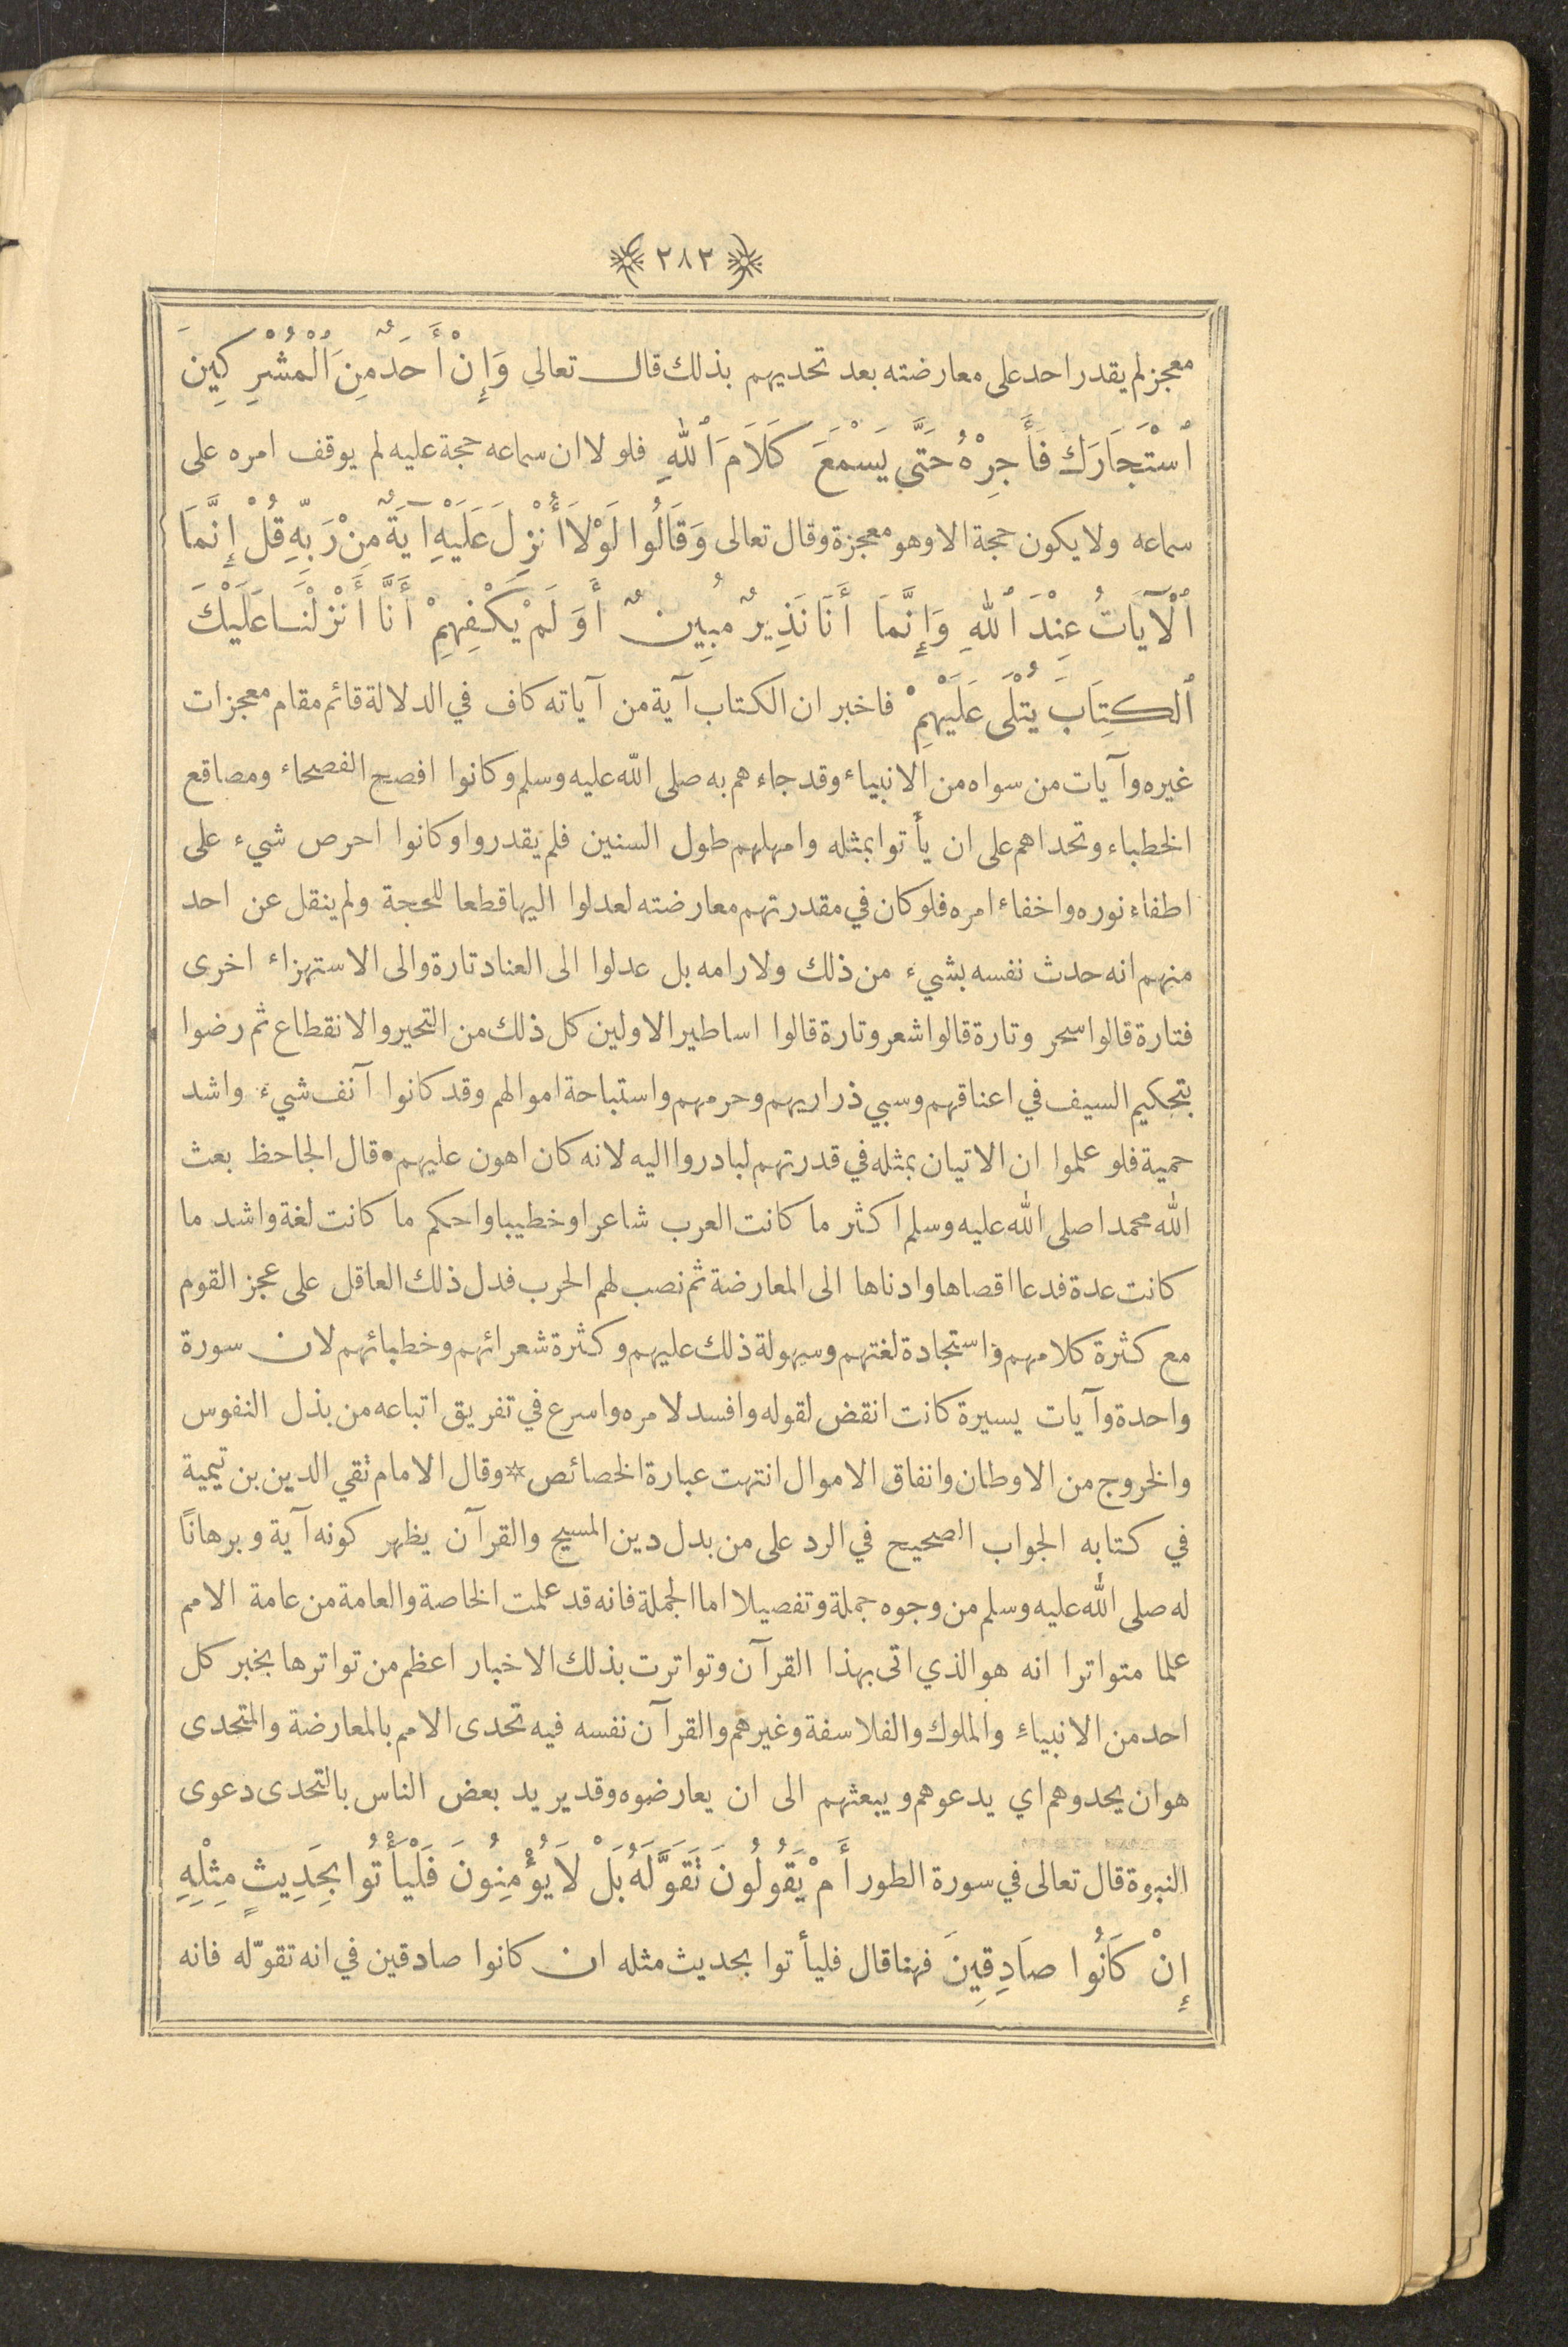 ﴿ ٢٨٢ ﴾
معجز لم يقدر احد على معارضته بعد تحديهم بذلك قال تعالى وَإِنْ أَحَدٌ مِنَ ٱلْمُشْرِكِينَ
ٱسْتَجَارَكَ فَأَجِرْهُ حَتَّى يَسْمَعَ كَلَامَ ٱللهِ فلولا ان سماعه حجة عليه لم يوقف امره على
سماعه ولا يكون حجة الا وهو معجزة وقال تعالى وَقَالُوا لَوْلَا أُنْزِلَ عَلَيْهِ آيَةٌ مِنْ رَبِّهِ قُلْ إِنَّمَا
ٱلْآيَاتُ عِنْدَ ٱللهِ وَإِنَّمَا أَنَا نَذِيرٌ مُبِينٌ أَوَ لَمْ يَكْفِهِمْ أَنَّا أَنْزَلْنَا عَلَيْكَ
ٱلكِتَابَ يُتْلَى عَلَيْهِمْ فاخبر ان الكتاب آية من آياته كاف في الدلالة قائم مقام معجزات
غيره وآيات من سواه من الانبياء وقد جاءهم به صلى الله عليه وسلم وكانوا افصح الفصحاء ومصاقع
الخطباء وتحداهم على ان يأتوا بمثله وامهلهم طول السنين فلم يقدروا وكانوا احرص شيء على
اطفاء نوره واخفاء امره فلو كان في مقدرتهم معارضته لعدلوا اليها قطعا للحجة ولم ينقل عن احد
منهم انه حدث نفسه بشيء من ذلك ولا رامه بل عدلوا الى العناد تارة والى الاستهزاء اخرى
فتارة قالوا سحر وتارة قالوا شعر وتارة قالوا اساطير الاولين كل ذلك من التحير والانقطاع ثم رضوا
بتحكيم السيف في اعناقهم وسبي ذراريهم وحرمهم واستباحة اموالهم وقد كانوا آنف شيء واشد
حمية فلو علموا ان الاتيان بمثله في قدرتهم لبادروا اليه لانه كان اهون عليهم • قال الجاحظ بعث
الله محمدا صلى الله عليه وسلم اكثر ما كانت العرب شاعرا وخطيبا واحكم ما كانت لغة واشد ما
كانت عدة فدعا اقصاها وادناها الى المعارضة ثم نصب لهم الحرب فدل ذلك العاقل على عجز القوم
مع كثرة كلامهم واستجادة لغتهم وسهولة ذلك عليهم وكثرة شعرائهم وخطبائهم لان سورة
واحدة وآيات يسيرة كانت انقض لقوله وافسد لامره واسرع في تفريق اتباعه من بذل النفوس
والخروج من الاوطان وانفاق الاموال انتهت عبارة الخصائص ☆ وقال الامام تقي الدين بن تيمية
في كتابه الجواب الصحيح في الرد على من بدل دين المسيح والقرآن يظهر كونه آية وبرهانًا
له صلى الله عليه وسلم من وجوه جملة وتفصيلا اما الجملة فانه قد علمت الخاصة والعامة من عامة الامم
علما متواترا انه هو الذي اتى بهذا القرآن وتواترت بذلك الاخبار اعظم من تواترها بخبر كل
احد من الانبياء والملوك والفلاسفة وغيرهم والقرآن نفسه فيه تحدى الامم بالمعارضة والتحدى
هو ان يحدوهم اي يدعوهم ويبعثهم الى ان يعارضوه وقد يريد بعض الناس بالتحدى دعوى
النبوة قال تعالى في سورة الطور أَمْ يَقُولُونَ تَقَوَّلَهُ بَلْ لَا يُؤْمِنُونَ فَلْيَأْتُوا بِحَدِيثٍ مِثْلِهِ
إِنْ كَانُوا صَادِقِينَ فهنا قال فليأتوا بحديث مثله ان كانوا صادقين في انه تقوّله فانه